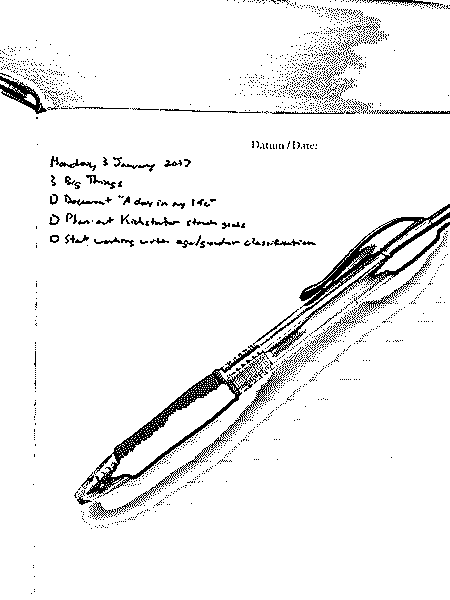 Datum / Date:
Monday, 3 January 2017
3 Big Things
Document "A day in my life"
Plan out Kickstarter stretch goals
Start working writer age/gender classification